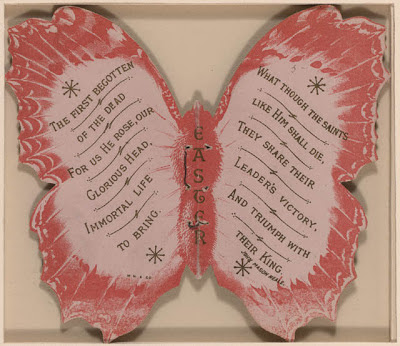 THE FIRST BEGOTTEN
OF THE DEAD
FOR US HE ROSE, OUR
GLORIOUS HEAD,
IMMORTAL LIFE
TO BRING.
EASTER
WHAT THOUGH THE SAINTS
LIKE HIM SHALL DIE,
THEY SHARE THEIR
LEADER'S VICTORY,
AND TRIUMPH WITH
THEIR KING.
JOHN MASON NEALE.